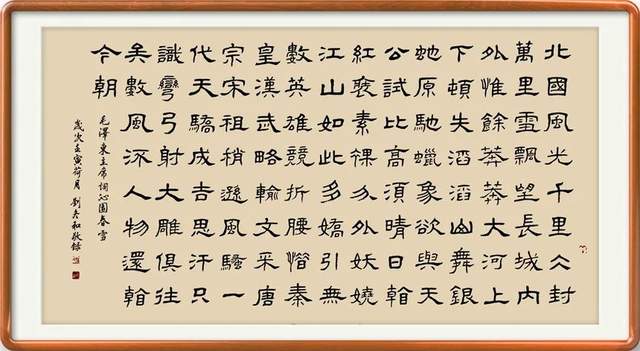 北國風光千里仌封
萬里雪飄望長城内
外惟餘莽莽大河上
下頓失滔滔山舞銀
虵原馳蠟象欲與天
公試比高須晴日看
紅裝素裹分外妖嬈
江山如此多嬌引無
數英雄競折腰惜秦
皇漢武略輸文采唐
宗宋祖稍遜風騷一
代天驕成吉思汗只
識彎弓射大雕俱往
矣數風流人物還看
今朝
毛澤東主席詞沁園春雪
歲次壬寅荷月 劉和敬録